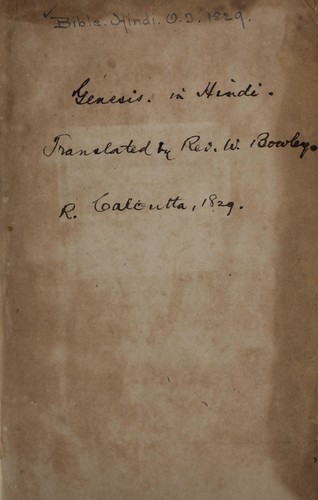 Bible. Hindi. O.T. 1829.
Genesis. in Hindi.
Translated by Rev. W. Bowley.
R. Calcutta, 1829.